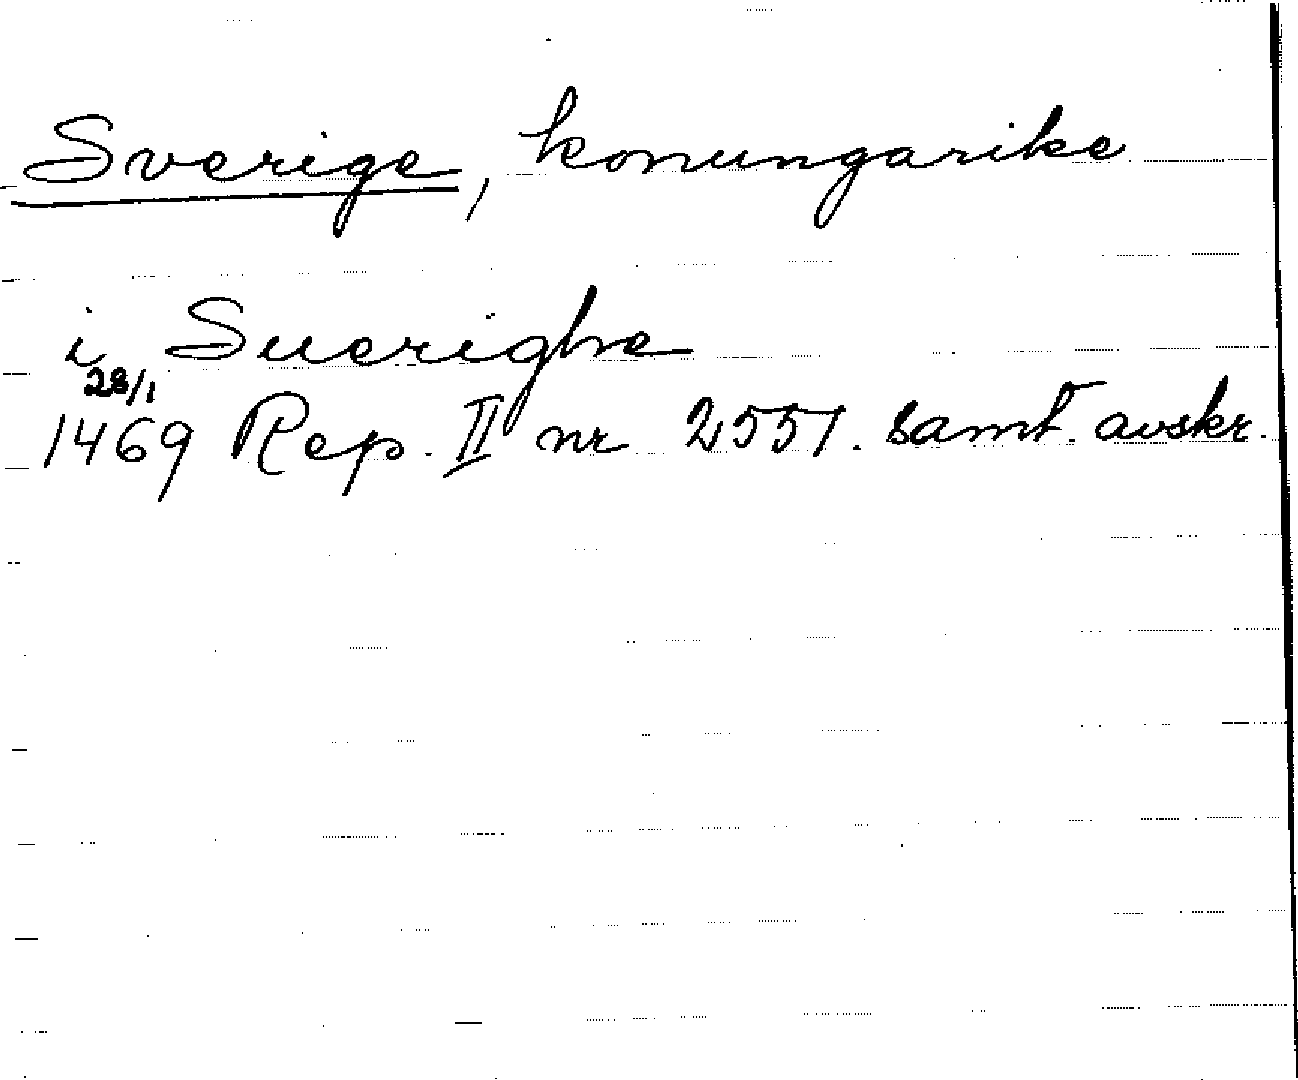 Sverige, konungarike
i Suerighe
28/1
1469 Rep. II nr 2551. samt. avskr.